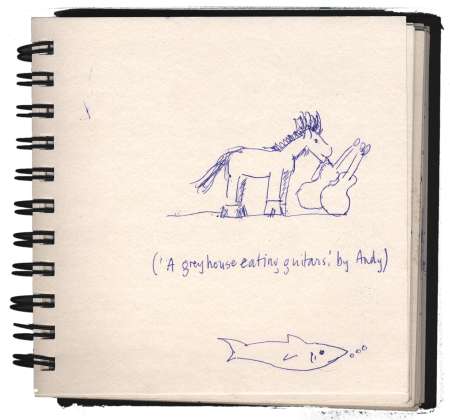 ('A greyhouse eating guitars.' by Andy)